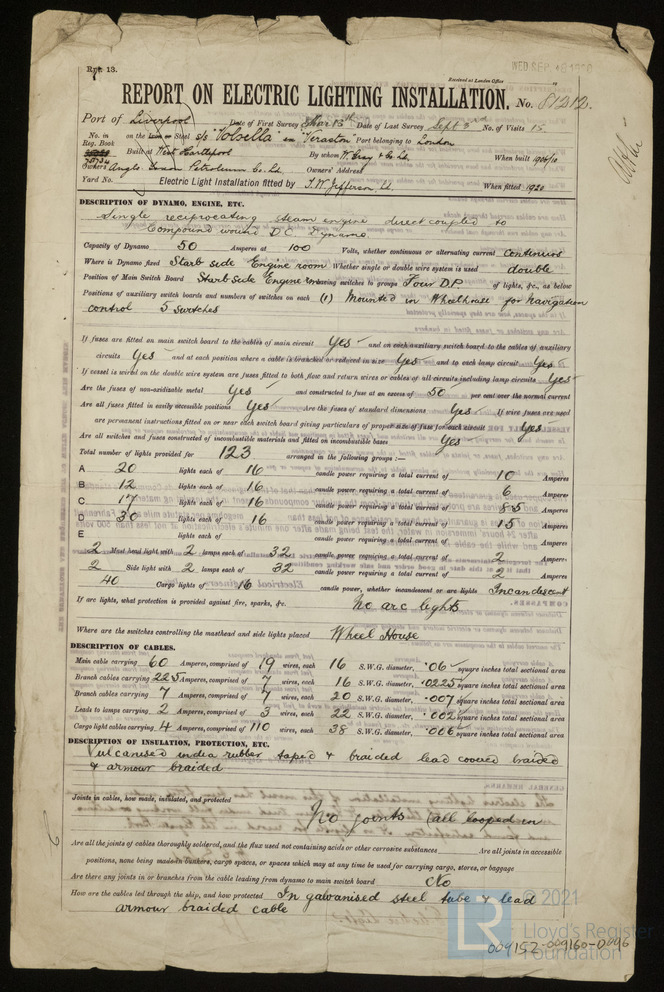 Rpt. 13.
Received at London Office
WED. SEP. 8 1920
REPORT ON ELECTRIC LIGHTING INSTALLATION. No. 81212.
Port of Liverpool Date of First Survey Mar 13th Date of Last Survey Sept 3rd No. of Visits 15.
No. in Reg. Book on the Iron or Steel s/s "Volsella" ex "Veraston" Port belonging to London
Built at West Hartlepool By whom W. Gray & Co Ld. When built 1906/10
Owners Anglo Saxon Petroleum Co. Ld Owners' Address
Yard No. Electric Light Installation fitted by J. W. Jefferson, Ld. When fitted 1920
DESCRIPTION OF DYNAMO, ENGINE, ETC.
Single reciprocating steam engine direct coupled to
Compound wound D.C. Dynamo
Capacity of Dynamo 50 Amperes at 100 Volts, whether continuous or alternating current continuous
Where is Dynamo fixed Starb side Engine room Whether single or double wire system is used double
Position of Main Switch Board Starb side Engine room having switches to groups Four D.P. of lights, &c., as below
Positions of auxiliary switch boards and numbers of switches on each (1) Mounted in Wheelhouse for navigation
control 5 switches
If fuses are fitted on main switch board to the cables of main circuit Yes and on each auxiliary switch board to the cables of auxiliary
circuits Yes and at each position where a cable is branched or reduced in size Yes and to each lamp circuit Yes
If vessel is wired on the double wire system are fuses fitted to both flow and return wires or cables of all circuits including lamp circuits Yes
Are the fuses of non-oxidizable metal Yes and constructed to fuse at an excess of 50 per cent over the normal current
Are all fuses fitted in easily accessible positions Yes Are the fuses of standard dimensions Yes If wire fuses are used
are permanent instructions fitted on or near each switch board giving particulars of proper size of fuse for each circuit Yes
Are all switches and fuses constructed of incombustible materials and fitted on incombustible bases Yes
Total number of lights provided for 123 arranged in the following groups :—
A 20 lights each of 16 candle power requiring a total current of 10 Amperes
B 12 lights each of 16 candle power requiring a total current of 6 Amperes
C 17 lights each of 16 candle power requiring a total current of 8.5 Amperes
D 30 lights each of 16 candle power requiring a total current of 15 Amperes
E lights each of candle power requiring a total current of Amperes
2 Mast head light with 2 lamps each of 32 candle power requiring a total current of 2 Amperes
2 Side light with 2 lamps each of 32 candle power requiring a total current of 2 Amperes
40 Cargo lights of 16 candle power, whether incandescent or arc lights Incandescent
If arc lights, what protection is provided against fire, sparks, &c. No arc lights
Where are the switches controlling the masthead and side lights placed Wheel House
DESCRIPTION OF CABLES.
Main cable carrying 60 Amperes, comprised of 19 wires, each 16 S.W.G. diameter, .06 square inches total sectional area
Branch cables carrying 22.5 Amperes, comprised of 7 wires, each 16 S.W.G. diameter, .0225 square inches total sectional area
Branch cables carrying 7 Amperes, comprised of 7 wires, each 20 S.W.G. diameter, .007 square inches total sectional area
Leads to lamps carrying 2 Amperes, comprised of 3 wires, each 22 S.W.G. diameter, .002 square inches total sectional area
Cargo light cables carrying 4 Amperes, comprised of 110 wires, each 38 S.W.G. diameter, .006 square inches total sectional area
DESCRIPTION OF INSULATION, PROTECTION, ETC.
Vulcanised india rubber taped & braided lead covered braided
& armour braided
Joints in cables, how made, insulated, and protected
No joints (all looped in
Are all the joints of cables thoroughly soldered, and the flux used not containing acids or other corrosive substances Are all joints in accessible
positions, none being made in bunkers, cargo spaces, or spaces which may at any time be used for carrying cargo, stores, or baggage
Are there any joints in or branches from the cable leading from dynamo to main switch board No
How are the cables led through the ship, and how protected In galvanised steel tube & lead
armour braided cable
© 2021
LR
Lloyd's Register
Foundation
009152-009160-0096